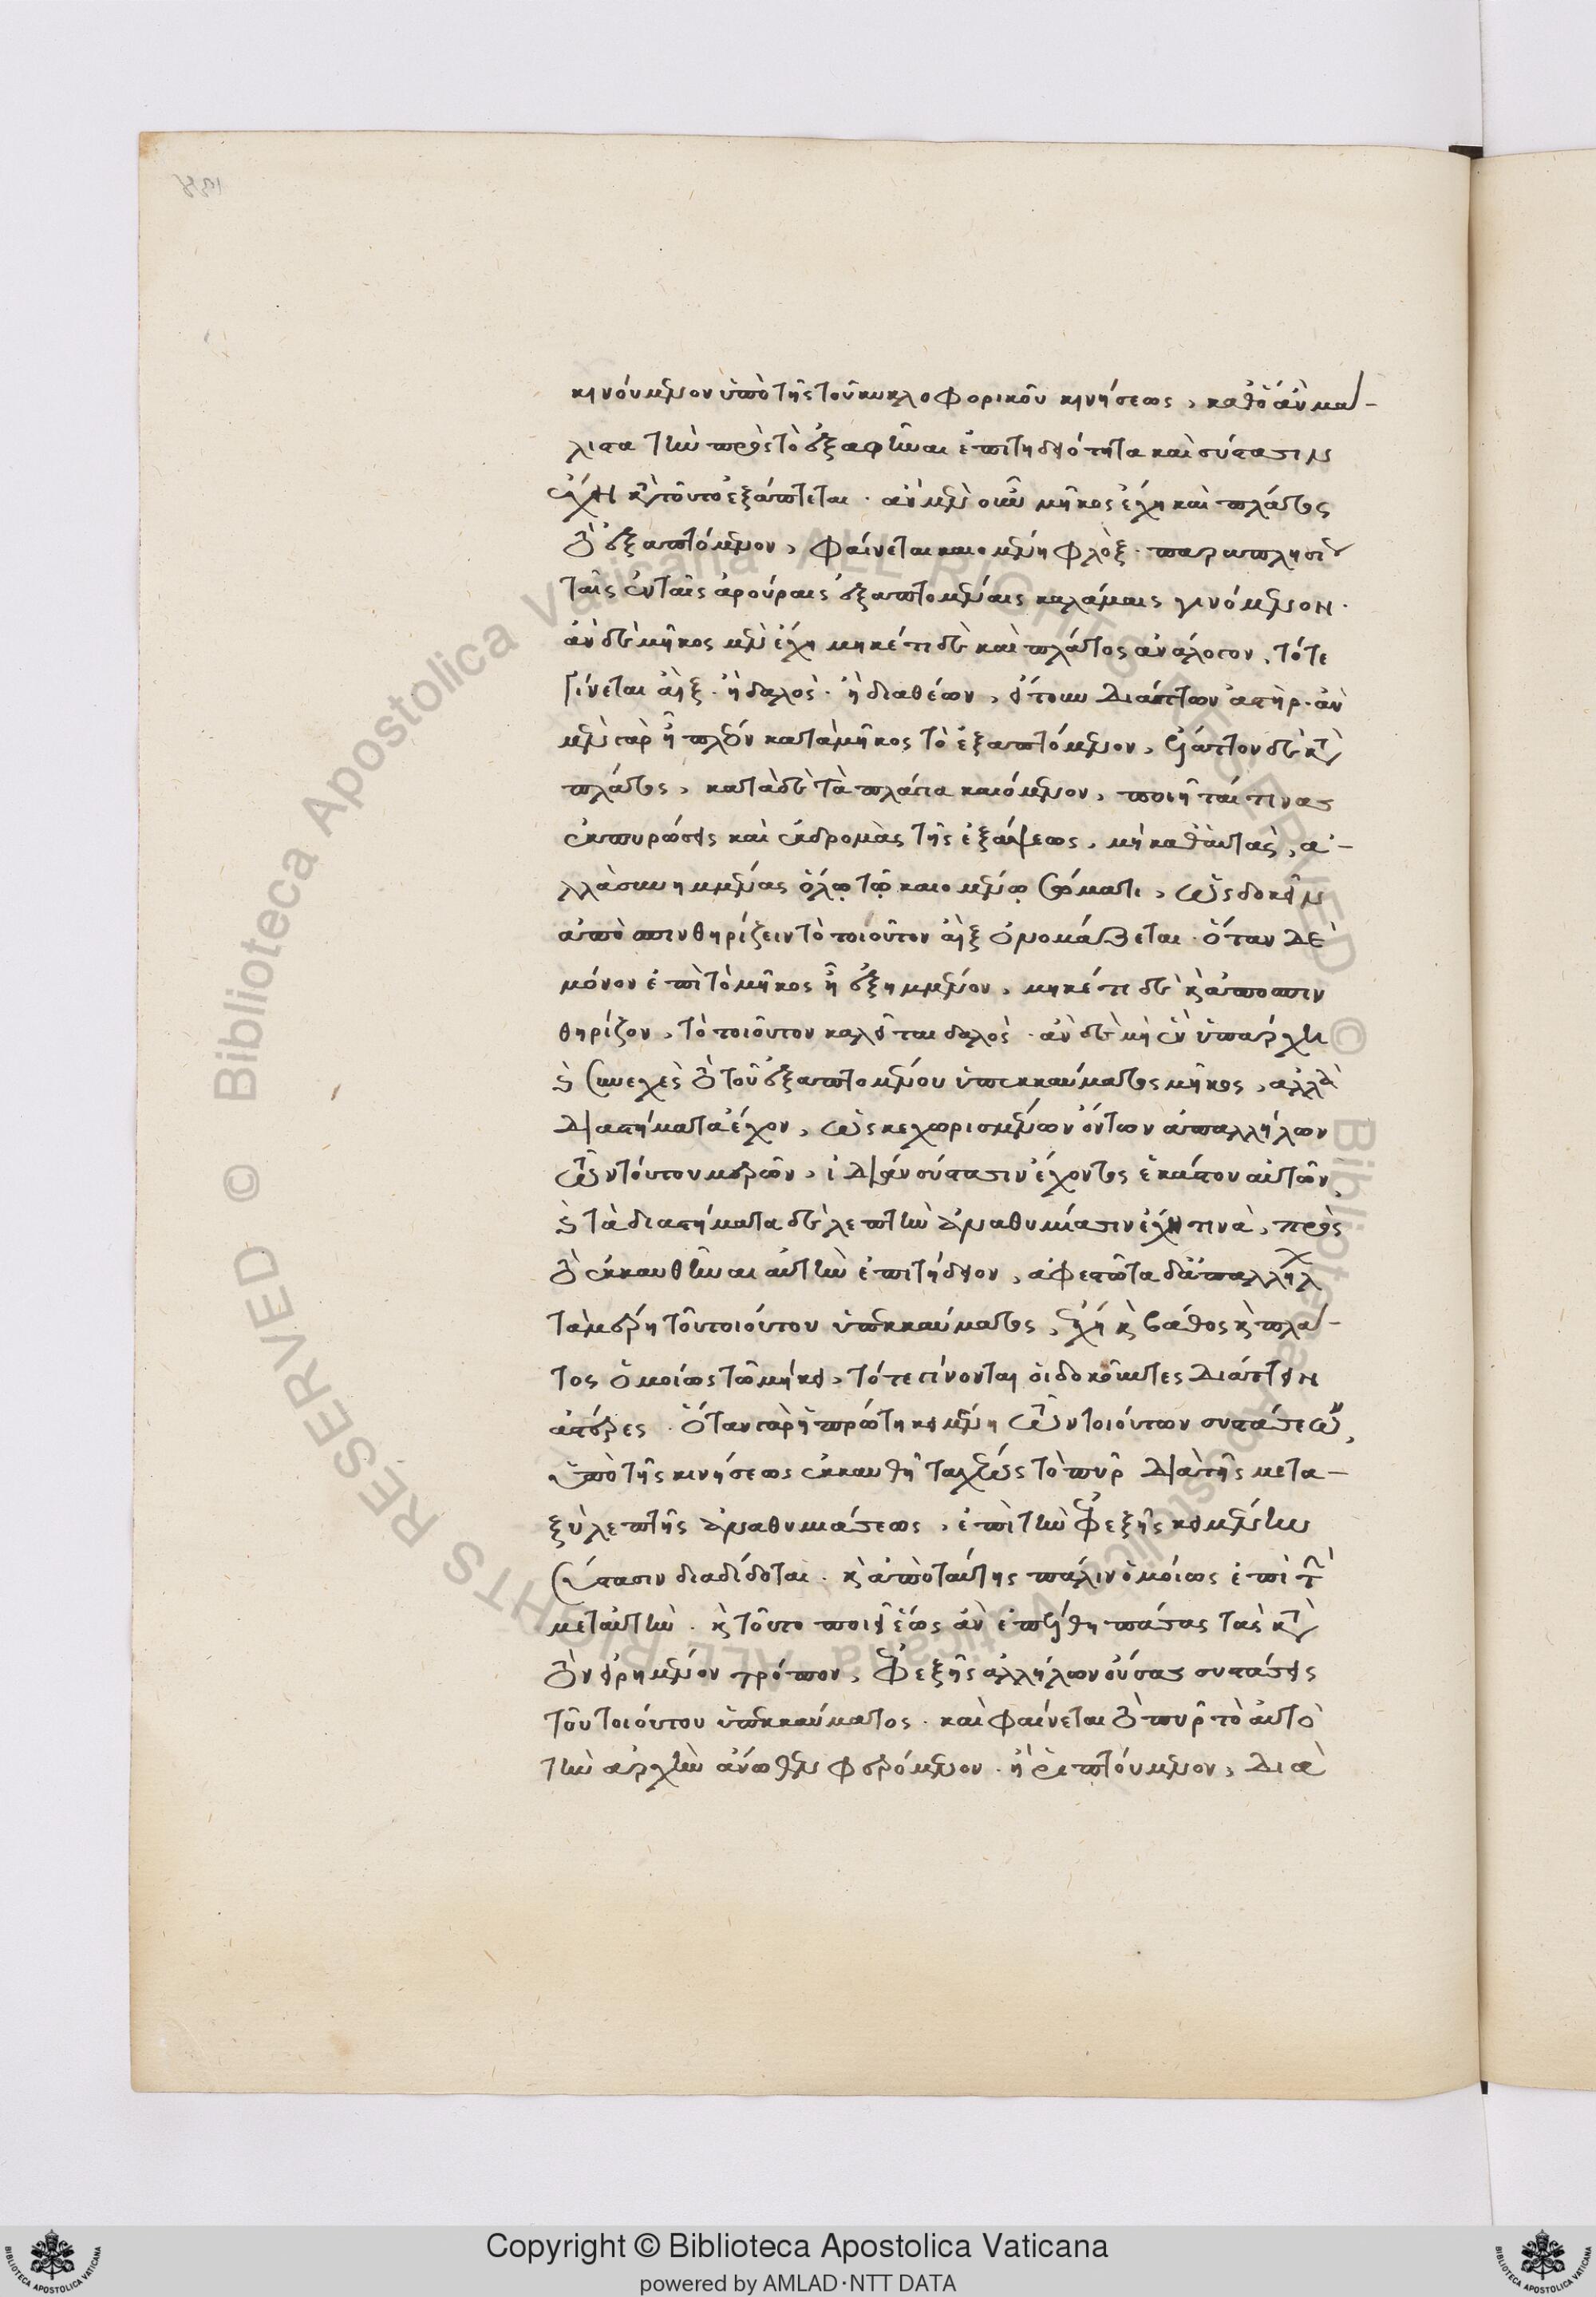 κινούμενον ὑπὸ τῆς τοῦ κυκλοφορικοῦ κινήσεως, καθὸ ἂν μά-
λιστα τὴν πρὸς τὸ ἐξαφθῆναι ἐπιτηδειότητα καὶ σύστασιν
ἔχῃ κατὰ τοῦτο ἐξάπτεται. ἂν μὲν οὖν μῆκος ἔχῃ καὶ πλάτος
τὸ ἐξαπτόμενον, φαίνεται καιομένη φλὸξ. παραπλησίως
ταῖς ἐν ταῖς ἀρούραις ἐξαπτομέναις καλάμαις γινόμενον.
ἂν δὲ μῆκος μὲν ἔχῃ μηκέτι δὲ καὶ πλάτος ἀνάλογον, τότε
γίνεται ἀὴξ. ἢ δαλὸς. ἢ διαθέων, ἤτοι διάττων ἀστὴρ. ἂν
μὲν γὰρ ᾖ πλέον κατὰ μῆκος τὸ ἐξαπτόμενον, ἔλαττον δὲ κατὰ
πλάτος, κατὰ δὲ τὰ πλάγια καιόμενον, ποιῆταί τινας
ἐκπυρώσεις καὶ ἐκδρομὰς τῆς ἐξάψεως, μὴ καθ' αὑτὰς, ἀ-
λλὰ συνημμένας ὅλῳ τῷ καιομένῳ σώματι, ὡς δοκεῖν
ἀποσπινθηρίζειν τὸ τοιοῦτον ἀὴξ ὀνομάζεται. ὅταν δὲ
μόνον ἐπὶ τὸ μῆκος ᾖ ἐξημμένον, μηκέτι δὲ καὶ ἀποσπιν
θηρίζον, τὸ τοιοῦτον καλεῖται δαλὸς. ἂν δὲ μὴ ἓν ὑπάρχῃ
καὶ συνεχὲς τὸ τοῦ ἐξαπτομένου ὑπεκκαύματος μῆκος, ἀλλὰ
διαστήματα ἔχον, ὡς κεχωρισμένων ὄντων ἀπ' ἀλλήλων
τῶν τούτου μερῶν, ἰδίαν σύστασιν ἔχοντος ἑκάστου αὐτῶν,
καὶ τὰ διαστήματα δὲ λεπτὴν ἀναθυμίασιν ἔχῃ τινὰ, πρὸς
τὸ ἐκκαυθῆναι αὐτὴν ἐπιτήδειον, ἀφεστῶτα δ' ἀπαλλήλων
τὰ μέρη τοῦ τοιούτου ὑπεκκαύματος, ἔχῃ καὶ βάθος καὶ πλά-
τος ὁμοίως τῶ μήκει, τότε γίνονται οἱ δοκοῦντες διάττειν
ἀστέρες. ὅταν γὰρ ἡ πρώτη κειμένη τῶν τοιούτων συστάσεων,
ὑπὸ τῆς κινήσεως ἐκκαυθῇ ταχέως τὸ πῦρ διὰ τῆς μετα-
ξὺ λεπτῆς ἀναθυμιάσεως, ἐπὶ τὴν ἐφεξῆς κειμένην
σύστασιν διαδίδοται. καὶ ἀπὸ ταύτης πάλιν ὁμοίως ἐπὶ τὴν
μετ' αὐτὴν. καὶ τοῦτο ποιεῖ ἕως ἂν ἐπέλθῃ πάσας τὰς κατὰ
τὸν εἰρημένον τρόπον, ἐφεξῆς ἀλλήλων οὔσας συστάσεις
τοῦ τοιούτου ὑπεκκαύματος. καὶ φαίνεται τὸ πῦρ τὸ αὐτὸ
τὴν ἀρχὴν ἄνωθεν φερόμενον. ἢ ῥιπτούμενον, διὰ